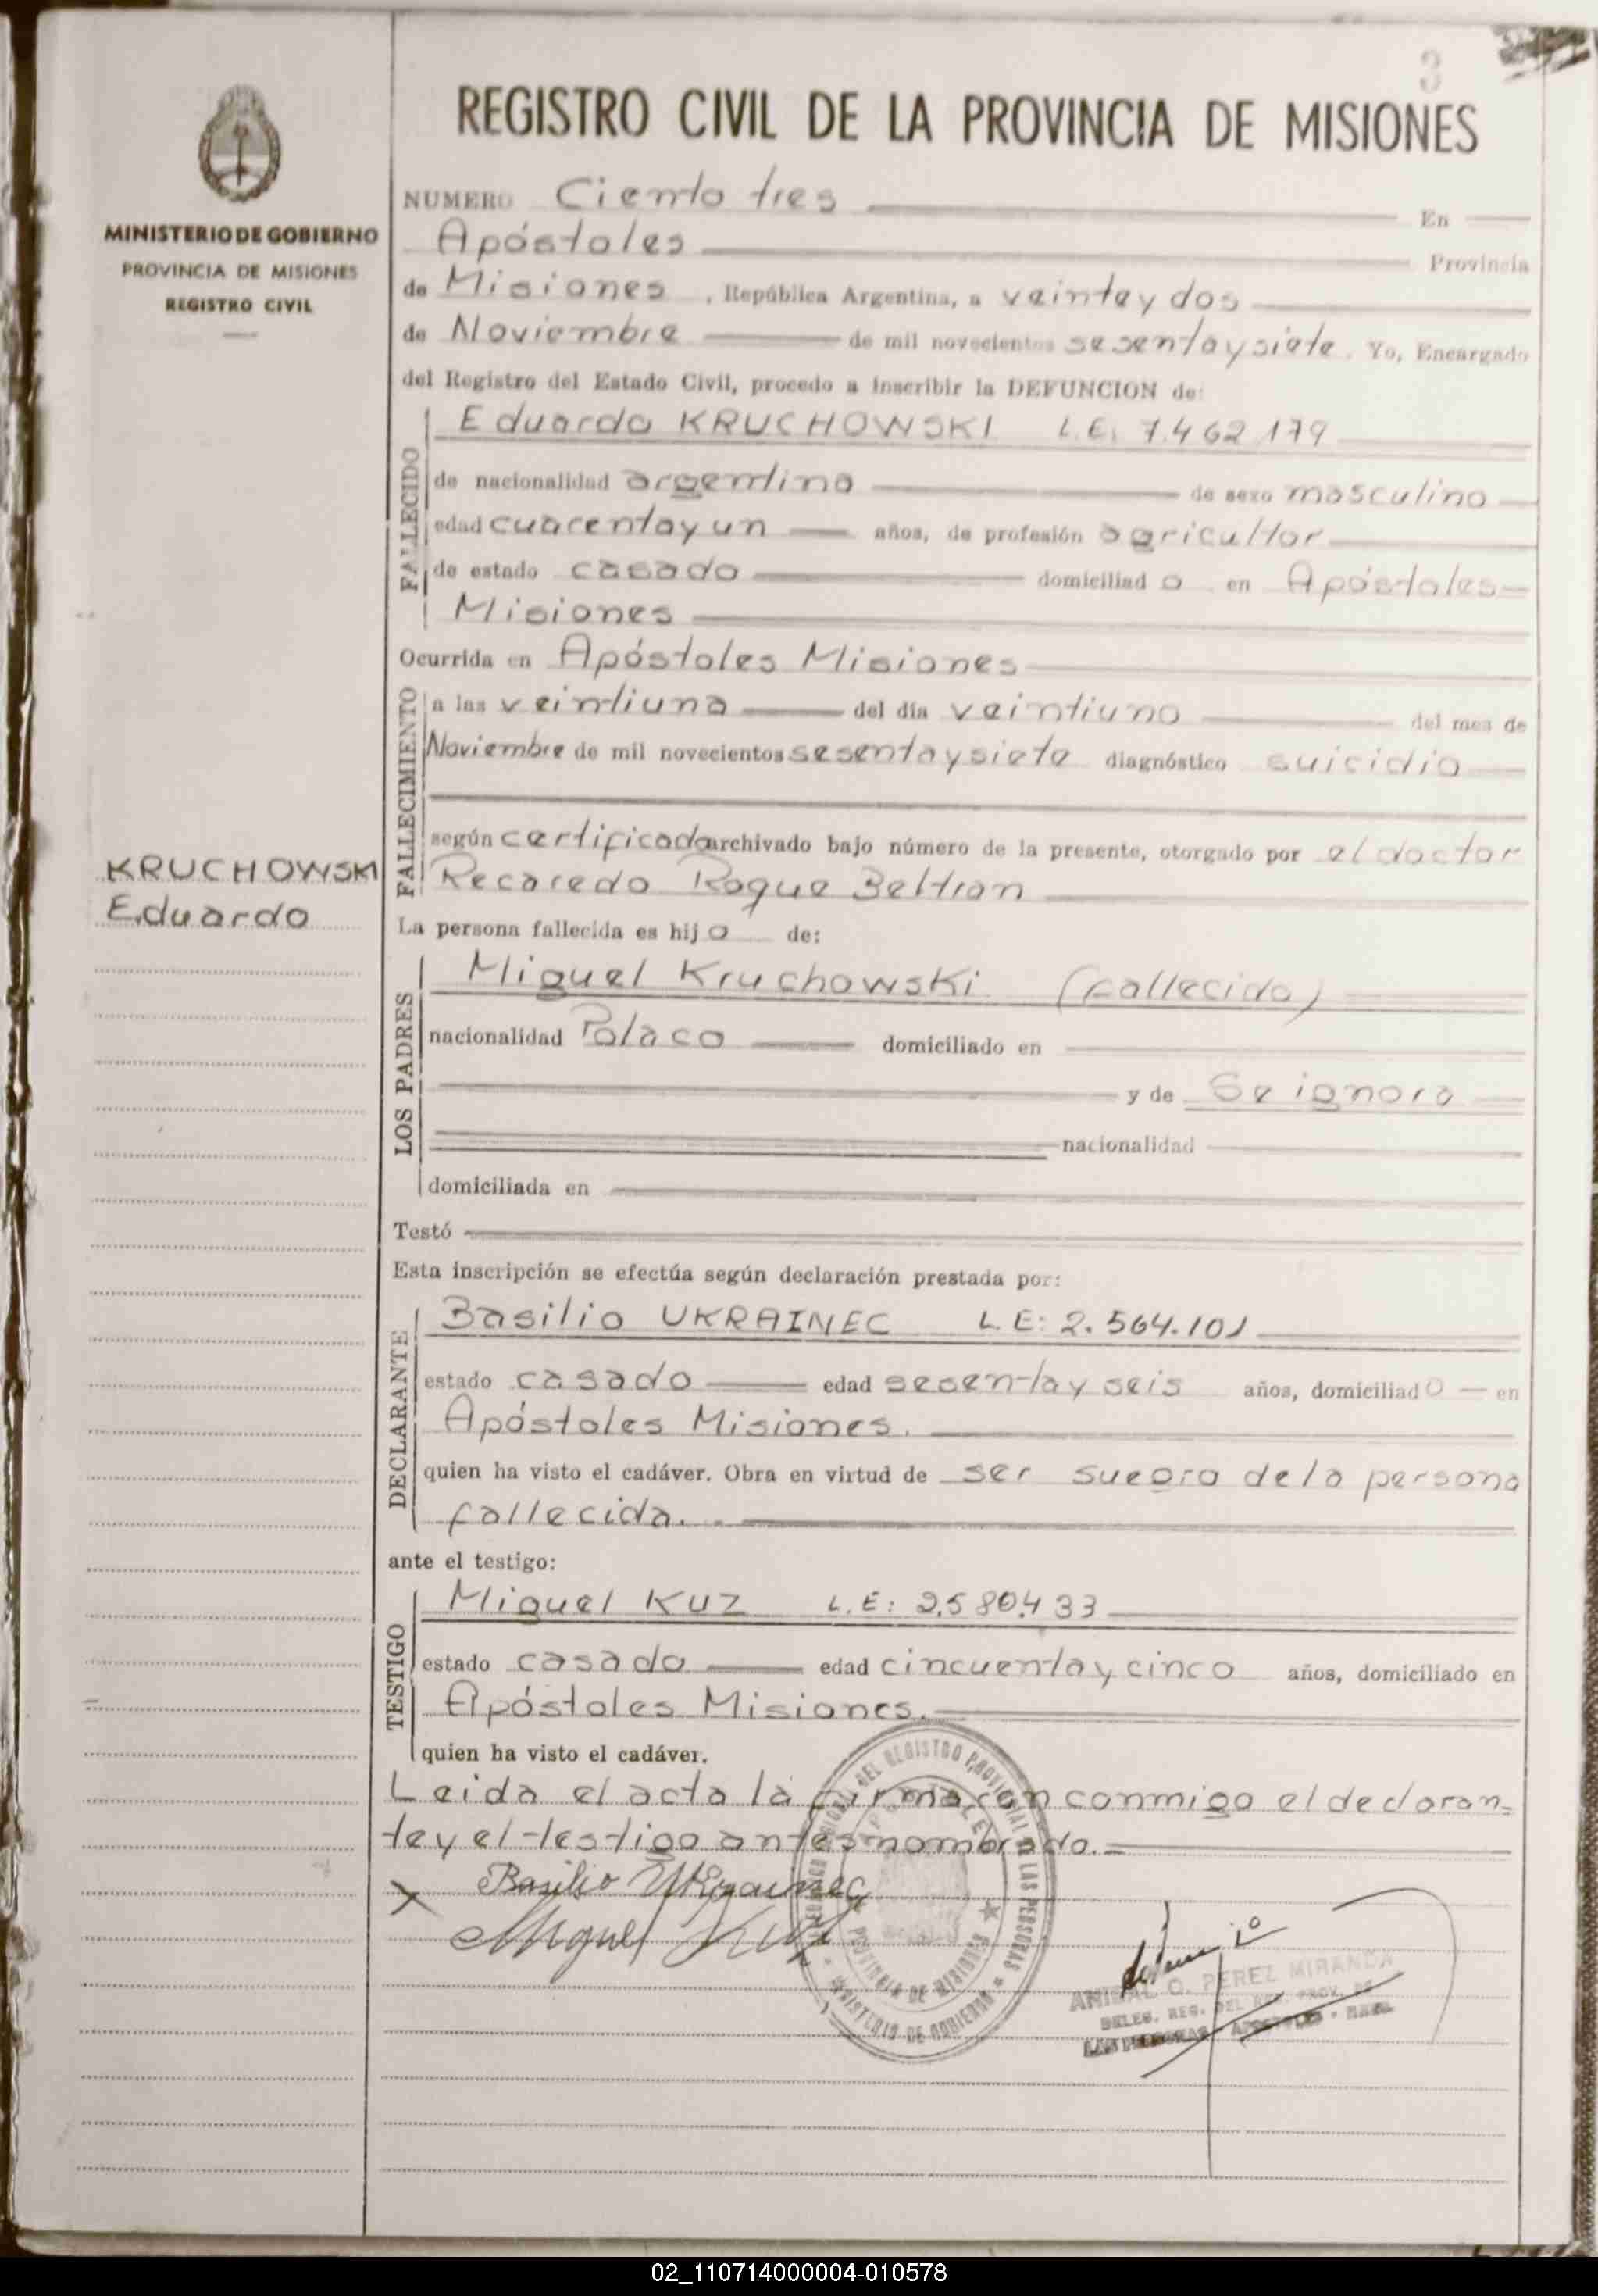 3
REGISTRO CIVIL DE LA PROVINCIA DE MISIONES
MINISTERIO DE GOBIERNO
PROVINCIA DE MISIONES
REGISTRO CIVIL
NUMERO Ciento tres En
Apóstoles Provincia
de Misiones, República Argentina, a veinte y dos
de Noviembre de mil novecientos sesenta y siete. Yo, Encargado
del Registro del Estado Civil, procedo a inscribir la DEFUNCION de:
FALLECIDO
Eduardo KRUCHOWSKI L.E. 7.462.179
de nacionalidad argentina de sexo masculino
edad cuarenta y un años, de profesión agricultor
de estado casado domiciliado en Apóstoles
Misiones
Ocurrida en Apóstoles Misiones
FALLECIMIENTO
a las veintiuna del día veintiuno del mes de
Noviembre de mil novecientos sesenta y siete diagnóstico suicidio
según certificado archivado bajo número de la presente, otorgado por el doctor
Recaredo Roque Beltran
KRUCHOWSKI
Eduardo
La persona fallecida es hijo de:
LOS PADRES
Miguel Kruchowski (fallecido)
nacionalidad Polaco domiciliado en
y de Se ignora
nacionalidad
domiciliada en
Testó
Esta inscripción se efectúa según declaración prestada por:
DECLARANTE
Basilio UKRAINEC L.E: 2.564.101
estado casado edad sesenta y seis años, domiciliado en
Apóstoles Misiones.
quien ha visto el cadáver. Obra en virtud de ser suegro de la persona
fallecida.
ante el testigo:
TESTIGO
Miguel KUZ L.E: 2.580.433
estado casado edad cincuenta y cinco años, domiciliado en
Apóstoles Misiones.
quien ha visto el cadáver.
Leida el acta la firmaron conmigo el declaran=
te y el testigo antes nombrado.=
Basilio Ukrainec
Miguel Kuz
PROVINCIA DE MISIONES
MINISTERIO DE GOBIERNO
ANIBAL O. PEREZ MIRANDA
DELEG. REG. DEL REG. PROV. DE
LAS PERSONAS - APOSTOLES - MNES.
02_110714000004-010578